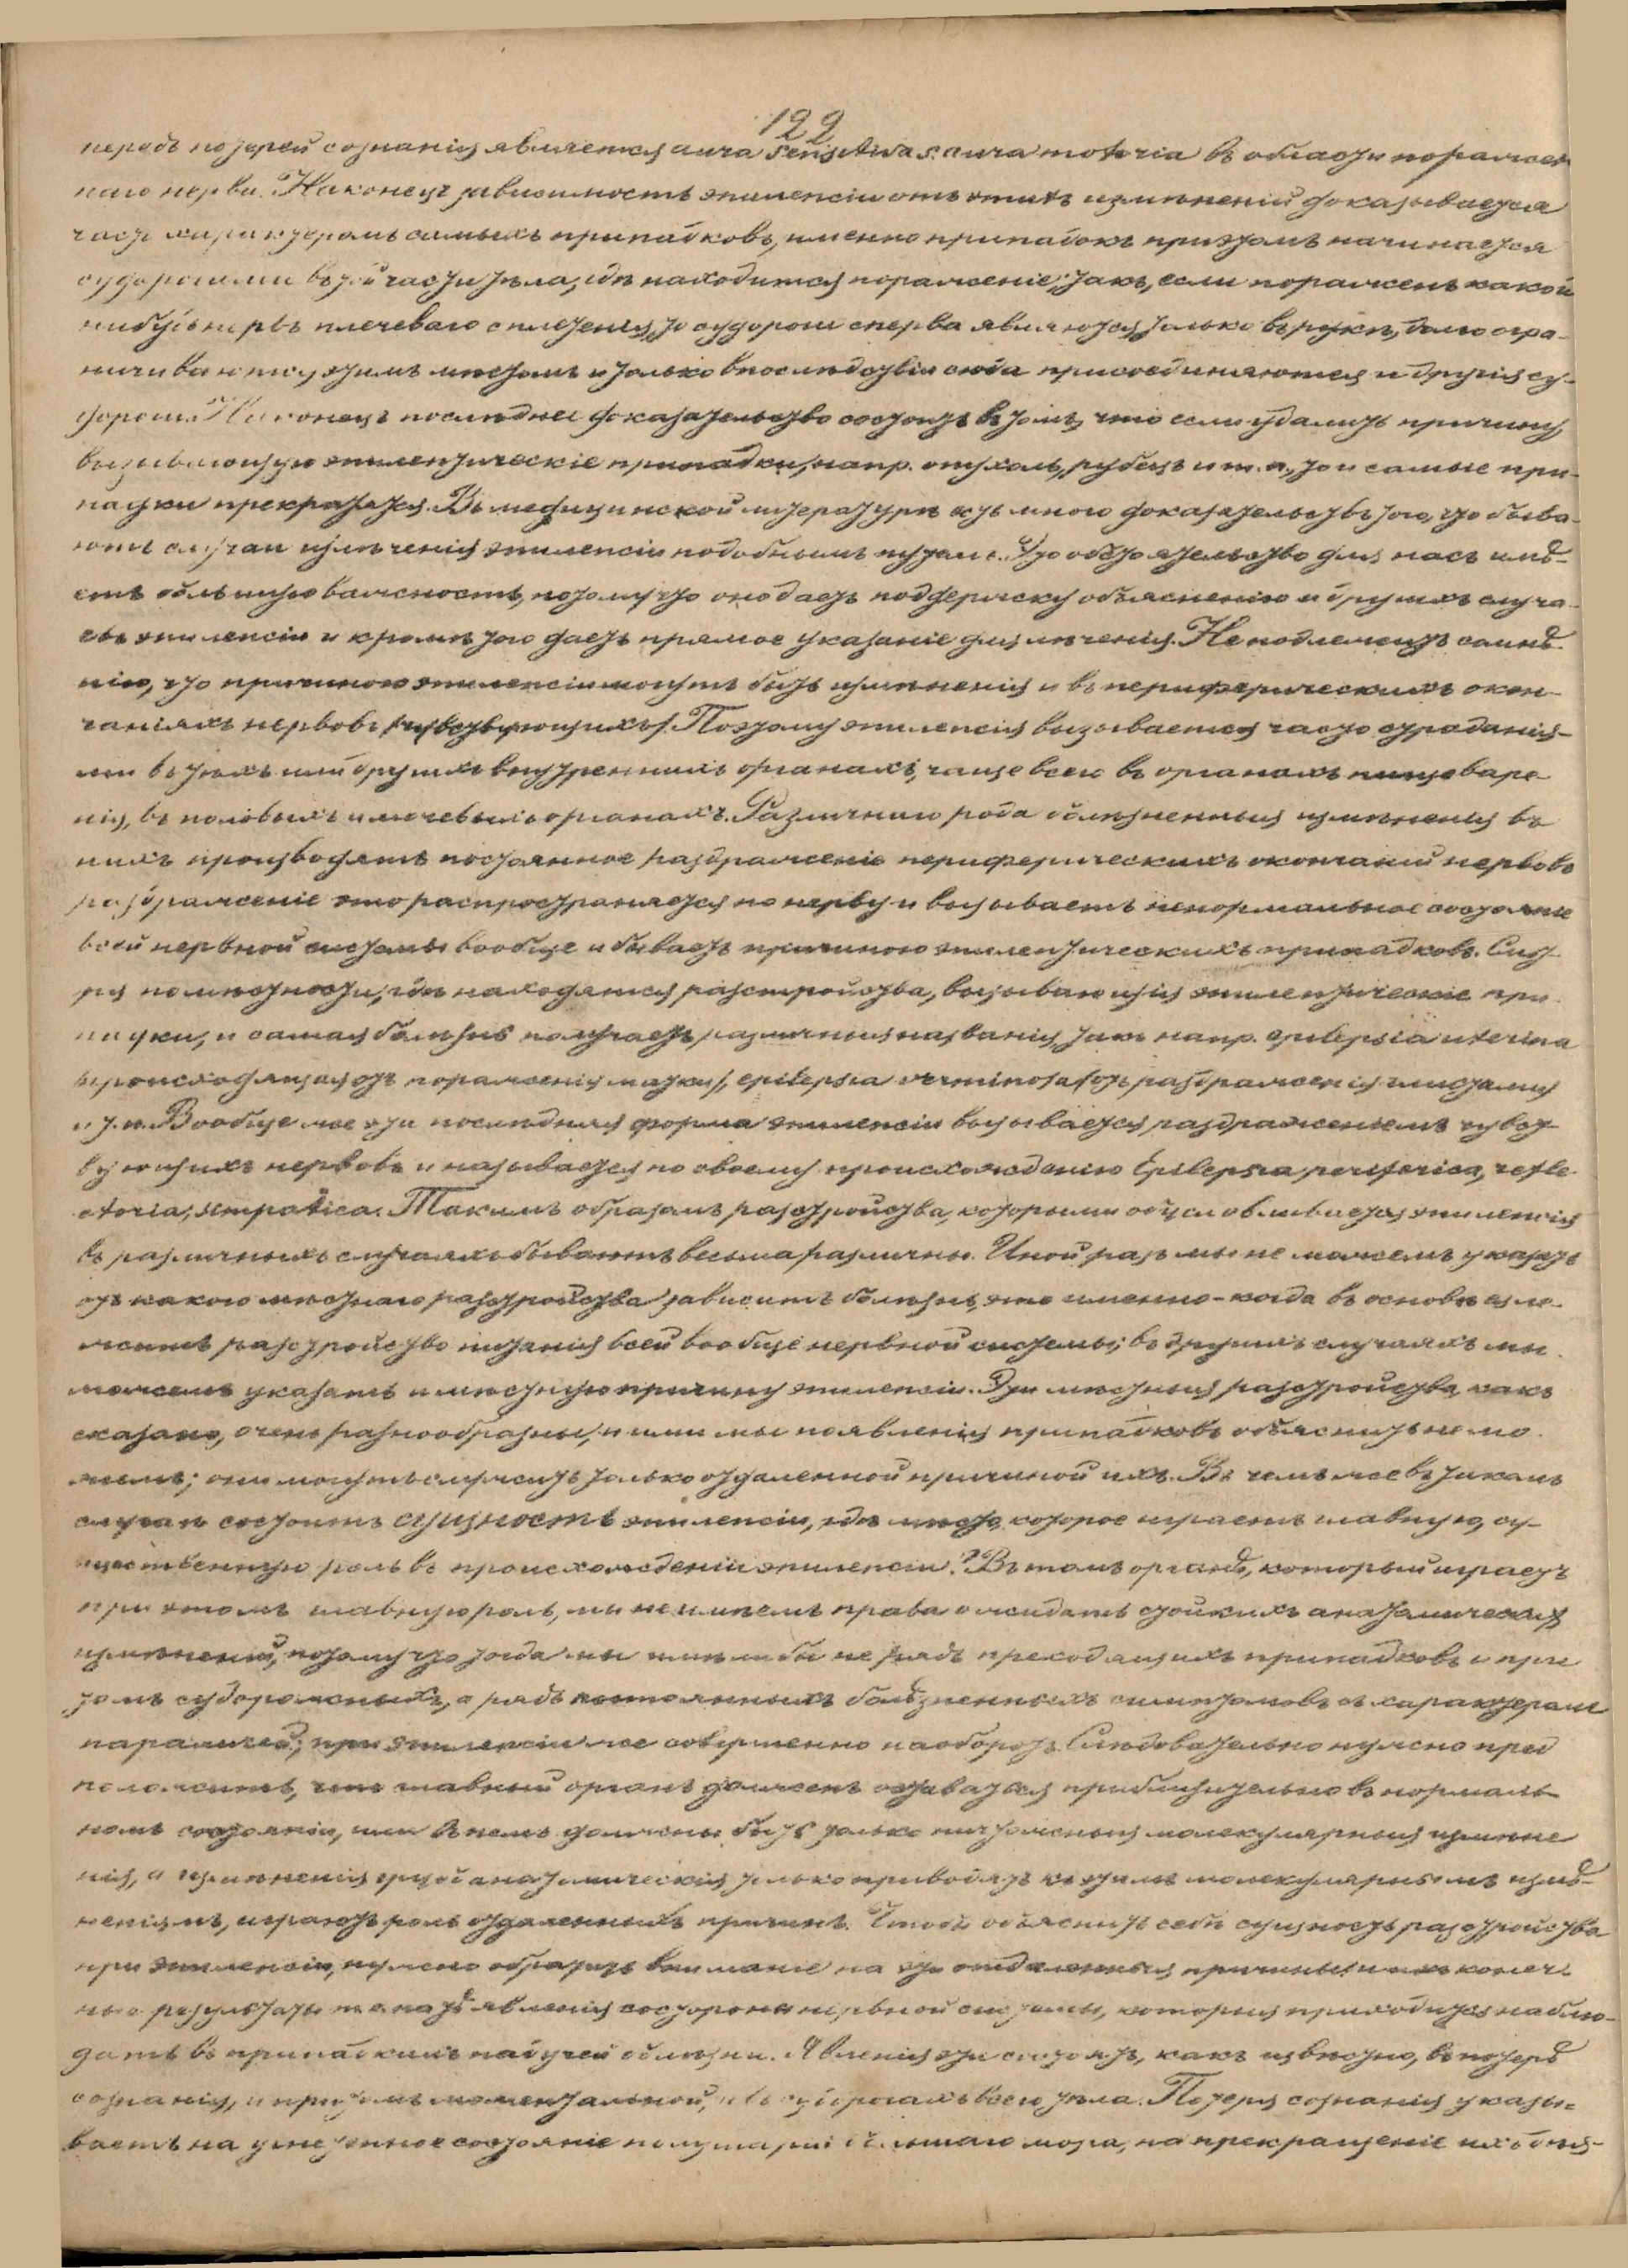 122
передъ потерей сознанія является aura sensitiva s. aura motoria въ области поражен
наго нерва. Наконецъ зависимость эпилепсіи отъ этихъ измѣненій доказывается
часто характеромъ самыхъ припадковъ, именно припадокъ при этомъ начинается
судорогами въ той части тѣла, гдѣ находится пораженіе; такъ, если пораженъ какой
нибудь нервъ плечеваго сплетенія, то судороги сперва являются только въ рукѣ, огра-
ничиваются этимъ мѣстомъ и только впослѣдствіи сюда присоединяются и другія су-
дороги. Наконецъ послѣднее доказательство состоитъ въ томъ, что если удалить причину,
вызывающую эпилептическіе припадки, напр. опухоль, рубецъ и т. п., то и самые при-
падки прекратятся. Въ медицинской литературѣ есть много доказательствъ того, что быва-
ютъ случаи излѣченія эпилепсіи подобнымъ путемъ. Это обстоятельство для насъ имѣ-
етъ большую важность, потому что оно даетъ поддержку объясненію и другихъ случа-
евъ эпилепсіи и кромѣ того даетъ прямое указаніе для лѣченія. Не подлежитъ сомнѣ-
нію, что причиною эпилепсіи могутъ быть измѣненія и въ периферическихъ окон-
чаніяхъ нервовъ (чувствующихъ). Поэтому эпилепсія вызывается часто страданія-
ми въ тѣхъ или другихъ внутреннихъ органахъ, чаще всего въ органахъ пищеваре-
нія, въ половыхъ и мочевыхъ органахъ. Различнаго рода болѣзненныя измѣненія въ
нихъ производятъ постоянное раздраженіе периферическихъ окончаній нервовъ
раздраженіе это распространяется по нерву и вызываетъ ненормальное состояніе
всей нервной системы вообще и бываетъ причиною эпилептическихъ припадковъ. Смот-
ря по мѣстности, гдѣ находятся разстройства, вызывающія эпилептическіе при-
падки, и самая болѣзнь получаетъ различныя названія, такъ напр. epilepsia uterina
(происходящая отъ пораженія матки), epilepsia verminosa (отъ раздраженія глистами)
и т. п. Вообще же эта послѣдняя форма эпилепсіи вызывается раздраженіемъ чувст-
вующихъ нервовъ и называется по своему происхожденію Epilepsia periferica, refle-
ctoria, simpatica. Такимъ образомъ разстройства, которыми обусловливается эпилепсія
въ различныхъ случаяхъ бываютъ весьма различны. Иной разъ мы не можемъ указать
отъ какого мѣстнаго разстройства зависитъ болѣзнь, это именно - когда въ основѣ ея ле-
житъ разстройство питанія всей вообще нервной системы; въ другихъ случаяхъ мы
можемъ указать и мѣстную причину эпилепсіи. Эти мѣстныя разстройства, какъ
сказано, очень разнообразны, и ими мы появленія припадковъ объяснить не мо-
жемъ; они могутъ служить только отдаленной причиной ихъ. Въ чемъ же въ такомъ
случаѣ состоитъ сущность эпилепсіи, гдѣ мѣсто, которое играетъ главную, су-
щественную роль въ происхожденіи эпилепсіи? Въ томъ органѣ, который играетъ
при этомъ главную роль, мы не имѣемъ права ожидать стойкихъ анатомическихъ
измѣненій, потому что тогда мы имѣли бы не рядъ преходящихъ припадковъ и при
томъ судорожныхъ, а рядъ постоянныхъ болѣзненныхъ симптомовъ съ характеромъ
параличей; при эпилепсіи же совершенно наоборотъ. Слѣдовательно нужно пред
положить, что главный органъ долженъ оставаться приблизительно въ нормаль-
номъ состояніи, или въ немъ должны быть только ничтожныя молекулярныя измѣне
нія, а измѣненія грубо анатомическія только приводятъ къ этимъ молекулярнымъ измѣ-
неніямъ, играютъ роль отдаленныхъ причинъ. Чтобъ объяснить себѣ сущность разстройства
при эпилепсіи, нужно обратить вниманіе на эти отдаленныя причины и ихъ конеч-
ные результаты явленія со стороны нервной системы, которыя приходится наблю-
дать въ припадкахъ падучей болѣзни. Явленія эти состоятъ, какъ извѣстно, въ потерѣ
сознанія, и притомъ моментальной, и въ судорогахъ всего тѣла. Потеря сознанія указы-
ваетъ на угнетенное состояніе полушарій большаго мозга, на прекращеніе ихъ дѣя-